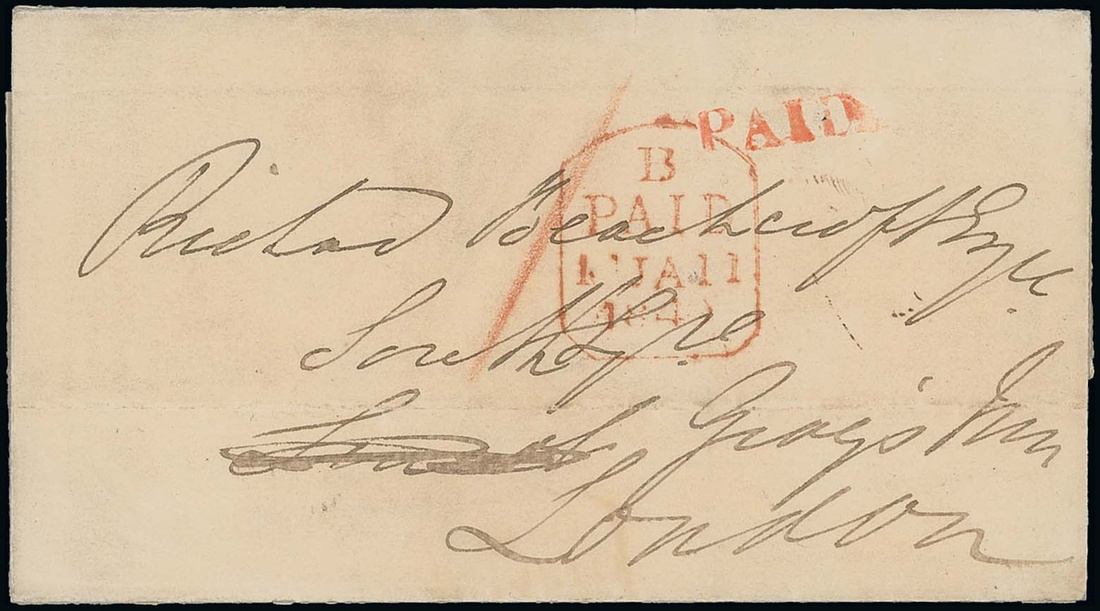 PAID
B
PAID
JA 11
Richard Beachcroft Esqre
South Sqre
Grays' Inn
London